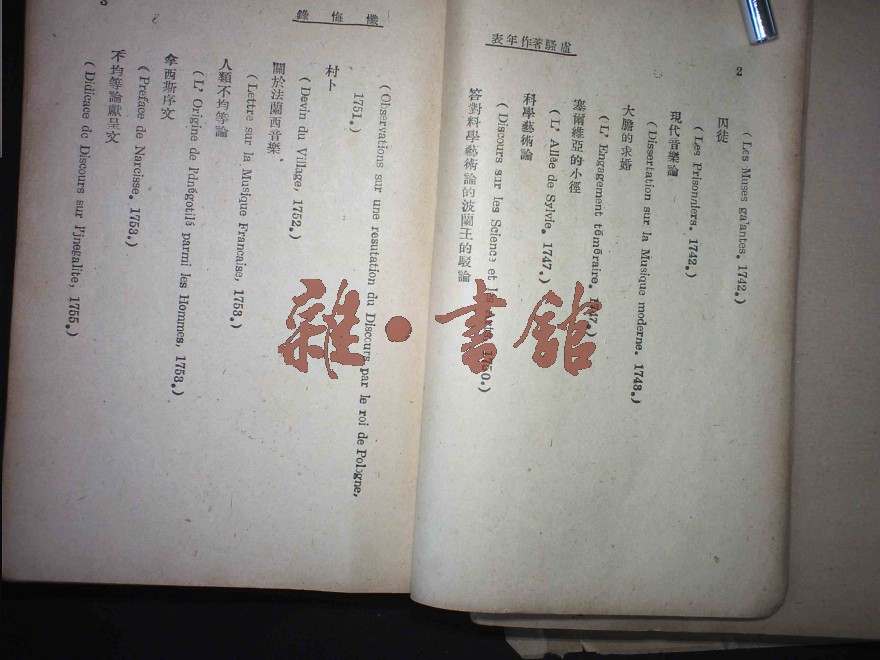 2
盧騷著作年表
(Les Muses ga'antes. 1742.)
囚徒
(Les Prisonniers. 1742.)
現代音樂論
(Dissertation sur la Musique moderne. 1743.)
大膽的求婚
(L' Engagement téméraire. 1747.)
塞爾維亞的小徑
(L' Allée de Sylvie. 1747.)
科學藝術論
(Discours sur les Science et les Arts. 1750.)
答對科學藝術論的波蘭王的駁論
懺悔錄
3
(Observations sur une resutation du Discours par le roi de Pologne,
1751.)
村卜
(Devin du Village, 1752.)
關於法蘭西音樂.
(Lettre sur la Musique Francaise, 1753.)
人類不均等論
(L' Origine de parmi les Hommes, 1753.)
拿西斯序文
(Preface de Narcisse. 1753.)
不均等論獻呈文
(Didicace de Discours sur l'inegalite, 1755.)
雜·書館